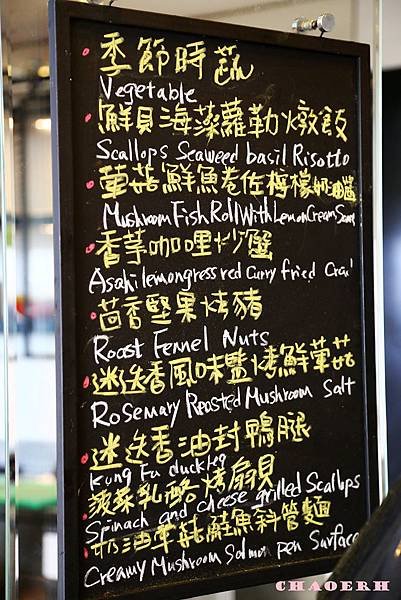 季節時蔬
Vegetable
鮮貝海藻蘿勒燉飯
Scallops Seaweed basil Risotto
蕈菇鮮魚卷佐檸檬奶油醬
Mushroom Fish Roll With Lemon Cream Sauce
香芋咖哩炒蟹
Asahi lemongress red Curry fried
茴香堅果烤豬
Roast Fennel Nuts
迷迭香風味鹽烤鮮蕈菇
Rosemary Roasted Mushroom Salt
迷迭香油封鴨腿
Kung Fu duck leg
菠菜乳酪烤扇貝
Spinach and cheese grilled Scallops
奶油蕈菇鮭魚斜管麵
Creamy Mushroom Salmon Pen Surface
CHAOERH